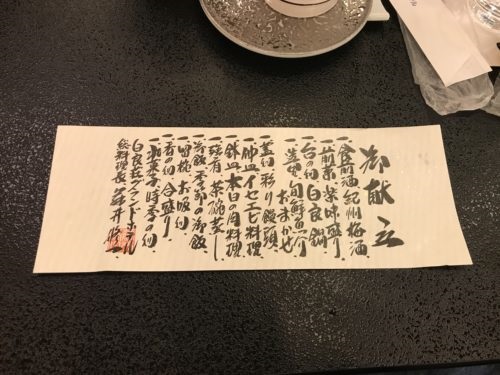 御献立
一、食前酒 紀州梅酒
一、前菜 珍味盛り
一、台の物 白良鍋
一、造里 旬鮮魚介
おまかせ
一、蓋物 彩り饅頭
一、中皿 イセエビ料理
一、鉢皿 本日の肉料理
一、茶碗蒸し
一、御飯 季節の御飯
一、留椀 お吸物
一、香の物 合盛り
一、和菓子 時季の物
白良荘グランドホテル
総料理長